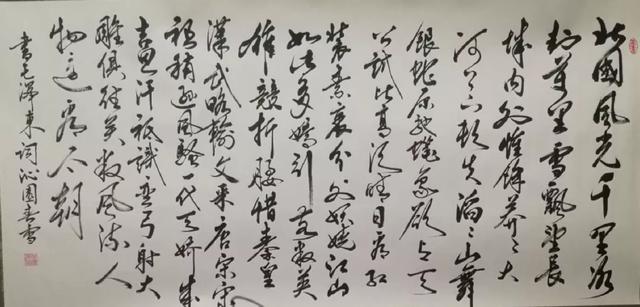 北國風光千里冰
封萬里雪飄望長
城内外惟餘莽々大
河上下頓失滔々山舞
銀蛇原馳蠟象欲与天
公試比高須晴日看紅
裝素裹分外妖嬈江山
如此多嬌引無数英
雄競折腰惜秦皇
漢武略輸文采唐宗宋
祖稍遜風騷一代天驕成
吉思汗祇識彎弓射大
雕俱往矣数風流人
物還看今朝
書毛澤東詞沁園春雪